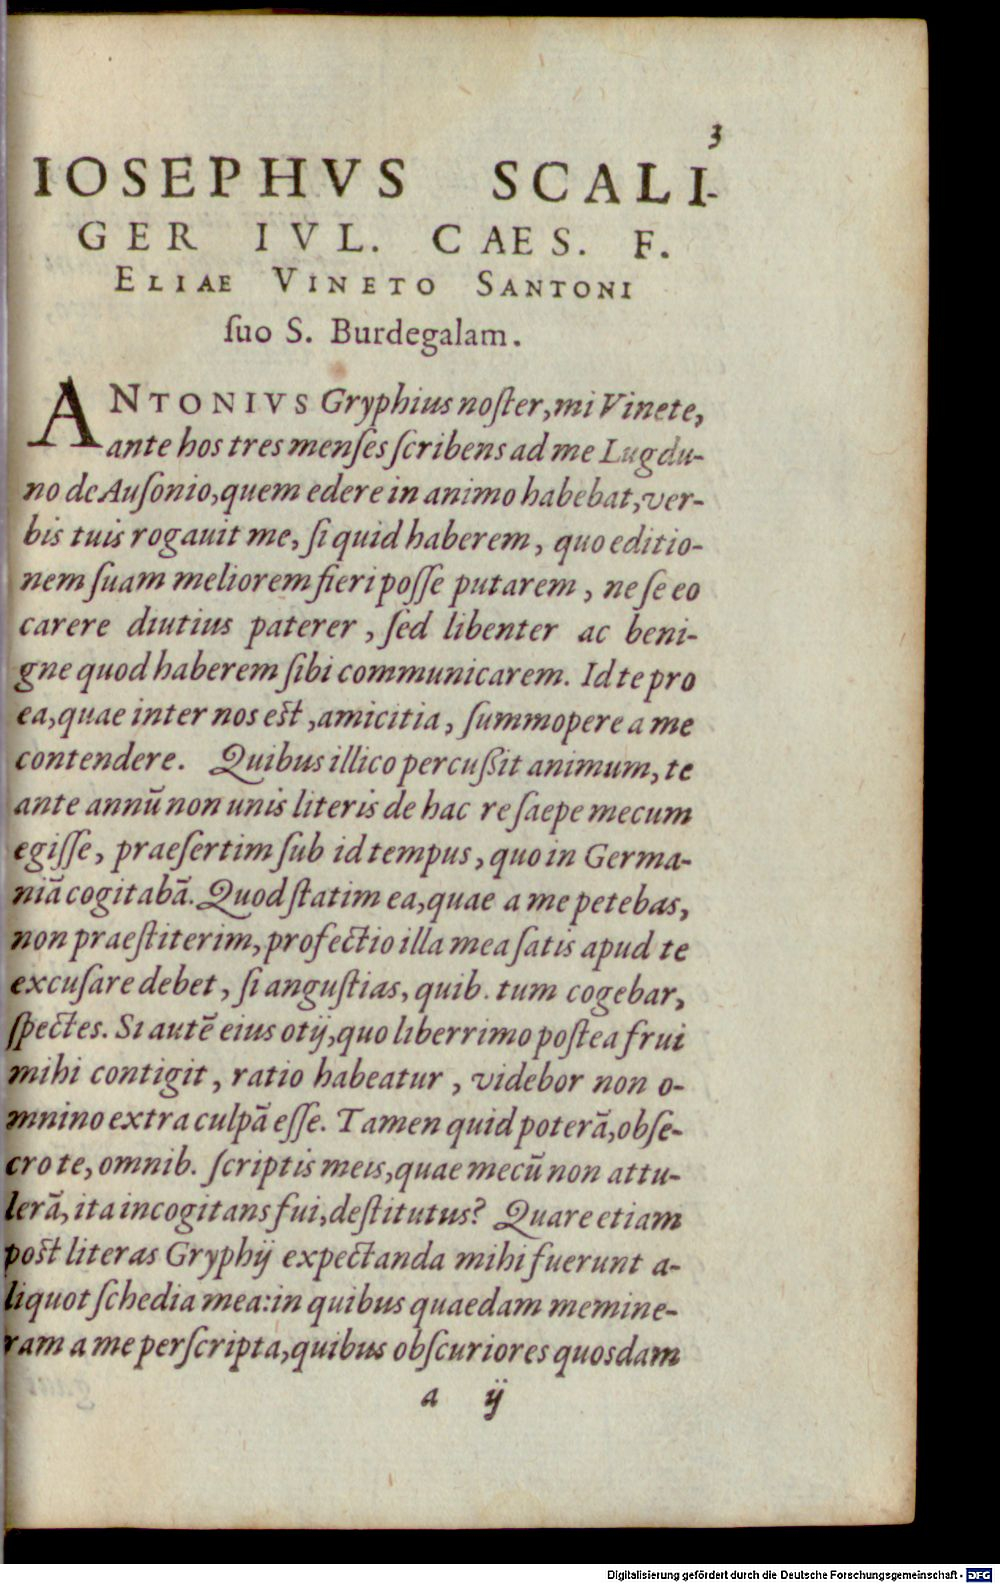 3
IOSEPHVS SCALI-
GER IVL. CAES. F.
ELIAE VINETO SANTONI
ſuo S. Burdegalam.
ANTONIVS Gryphius noſter, mi Vinete,
ante hos tres menſes ſcribens ad me Lugdu-
no de Auſonio, quem edere in animo habebat, ver-
bis tuis rogauit me, ſi quid haberem, quo editio-
nem ſuam meliorem fieri poſſe putarem, ne ſe eo
carere diutius paterer, ſed libenter ac beni-
gne quod haberem ſibi communicarem. Id te pro
ea, quae inter nos eſt, amicitia, ſummopere a me
contendere. Quibus illico percuſſit animum, te
ante annū non unis literis de hac re ſaepe mecum
egiſſe, praeſertim ſub id tempus, quo in Germa-
niā cogitabā. Quod ſtatim ea, quae a me petebas,
non praeſtiterim, profectio illa mea ſatis apud te
excuſare debet, ſi anguſtias, quib. tum cogebar,
ſpectes. Si autē eius otij, quo liberrimo poſtea frui
mihi contigit, ratio habeatur, videbor non o-
mnino extra culpā eſſe. Tamen quid poterā, obſe-
cro te, omnib. ſcriptis meis, quae mecū non attu-
lerā, ita incogitans fui, deſtitutus? Quare etiam
poſt literas Gryphij expectanda mihi fuerunt a-
liquot ſchedia mea: in quibus quaedam memine-
ram a me perſcripta, quibus obſcuriores quosdam
a ij
Digitalisierung gefördert durch die Deutsche Forschungsgemeinschaft - DFG